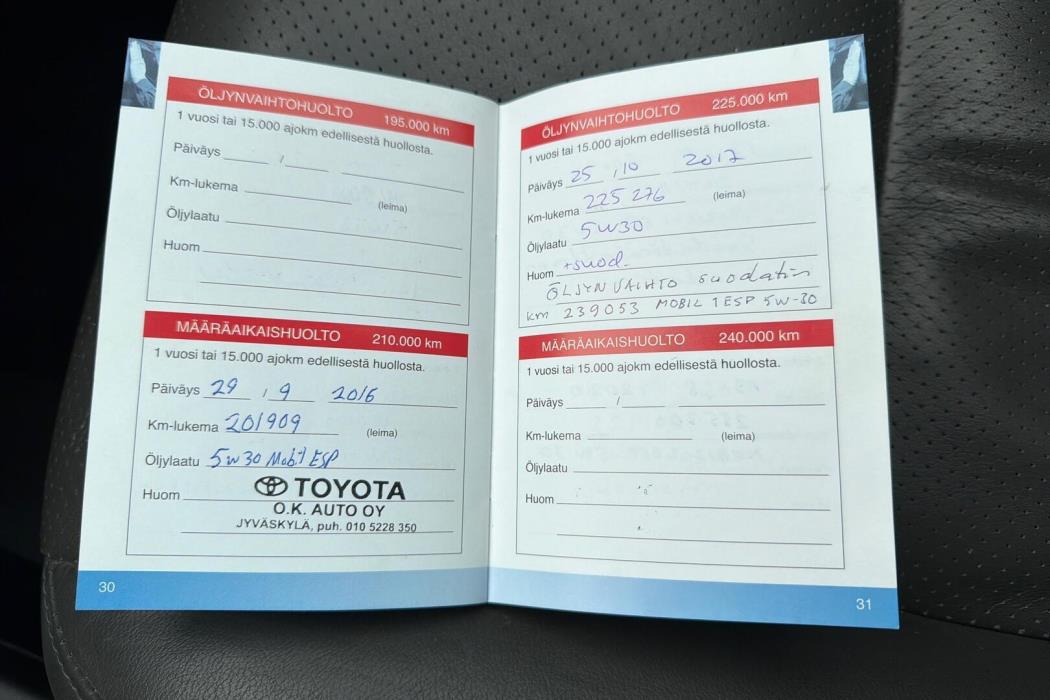 ÖLJYNVAIHTOHUOLTO 195.000 km
1 vuosi tai 15.000 ajokm edellisestä huollosta.
Päiväys /
Km-lukema (leima)
Öljylaatu
Huom
MÄÄRÄAIKAISHUOLTO 210.000 km
1 vuosi tai 15.000 ajokm edellisestä huollosta.
Päiväys 29 / 9 2016
Km-lukema 201909 (leima)
Öljylaatu 5W30 Mobil ESP
Huom
TOYOTA
O.K. AUTO OY
JYVÄSKYLÄ, puh. 010 5228 350
30
ÖLJYNVAIHTOHUOLTO 225.000 km
1 vuosi tai 15.000 ajokm edellisestä huollosta.
Päiväys 25 / 10 2017
Km-lukema 225 276 (leima)
Öljylaatu 5W30
Huom +suod.
ÖLJYN VAIHTO suodatin
km 239053 MOBIL 1 ESP 5W-30
MÄÄRÄAIKAISHUOLTO 240.000 km
1 vuosi tai 15.000 ajokm edellisestä huollosta.
Päiväys /
Km-lukema (leima)
Öljylaatu
Huom
31